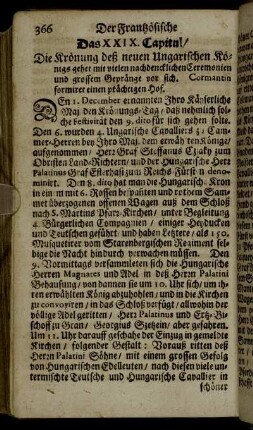 366 Der Frantzösische
Das XXIX. Capitul/
Die Krönung deß neuen Ungarischen Kö-
nigs gehet mit vielen nachdencklichen Ceremonien
und grossem Gepränge vor sich. Cormantin
formiret einen prächtigen Hof.
DEn 1. December ernannten Ihro Käyserliche
Maj. den Krönungs-Tag/ daß nehmlich sol-
che Festivität den 9. dito für sich gehen solte.
Den 6. wurden 4. Ungarische Cavalliers zu Cam-
mer-Herren bey Ihro Maj. dem erwählten König/
aufgenommen/ Herr Graf Stephanus Czaky zum
Obristen Land-Richtern/ und der Hungarische Herr
Palatinus Graf Esterhasi zum Reichs Fürsten deno-
minirt. Den 8. dito hat man die Hungarisch. Kron
in einem mit 6. Rossen bespañten und rothem Sam-
met überzogenen offenen Wagen auß dem Schloß
nach S. Martins Pfarr-Kirchen/ unter Begleitung
4. Bürgerlichen Compagnien/ einiger Heyducken
und Teutschen geführt und haben Letztere/ als 150.
Musquetirer vom Starenbergischen Regiment sel-
bige die Nacht hindurch verwachen müssen. Den
9. Vormittags versammleten sich die Hungarische
Herren Magnates und Adel in deß Herrn Palatini
Behausung/ von dannen sie um 10. Uhr sich/ um ih-
ren erwöhlten König abzuhohlen/ und in die Kirchen
zu convoyiren/ in das Schloß verfügt/ allwohin der
völlige Adel geritten/ Herr Palatinus und Ertz-Bi-
schoff zu Gran/ Georgius aber gefahren.
Um 11. Uhr darauff geschahe der Einzug in gemeldte
Kirchen/ folgender Gestalt: Vorauß ritten deß
Herrn Palatini Söhne/ mit einem grossen Gefolg
von Hungarischen Edelleuten/ nach diesen viele un-
termischte Teutsche und Hungarische Cavallier in
schöner